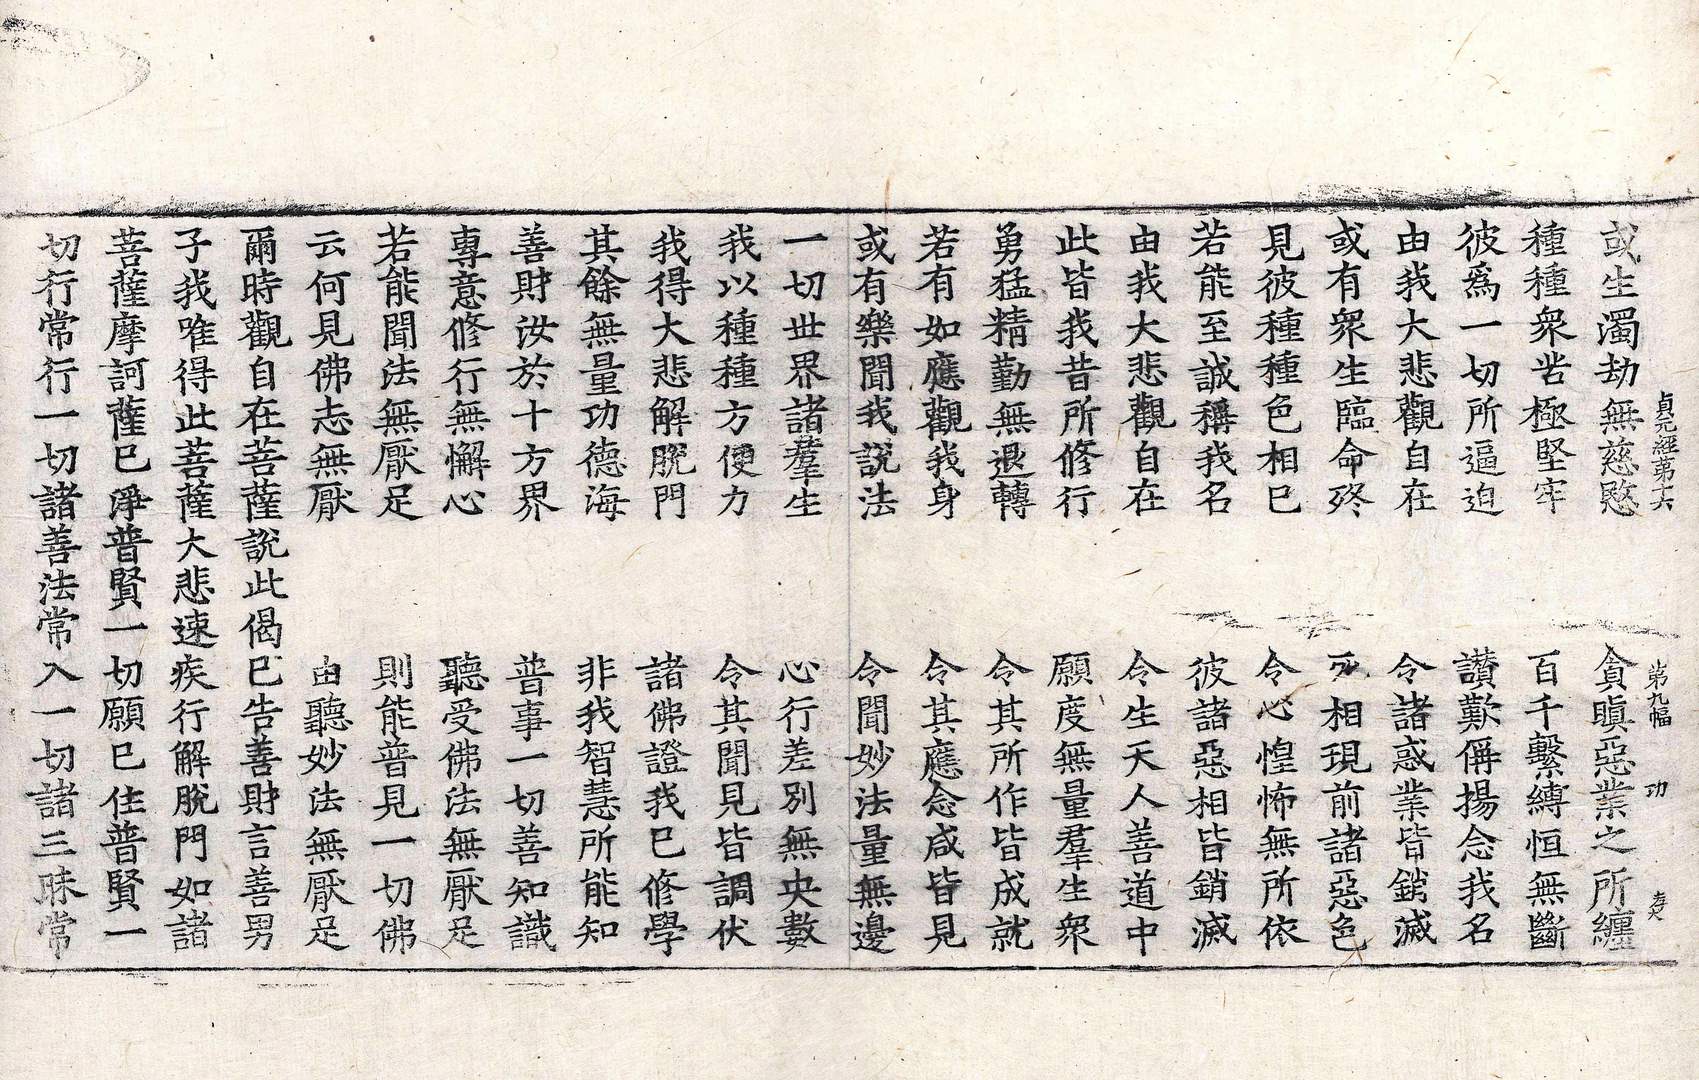 貞元經第十六 第九幅 功
或生濁劫無慈愍 貪瞋惡業之所纏
種種衆苦極堅牢 百千繫縛恒無斷
彼爲一切所逼迫 讃歎偁揚念我名
由我大悲觀自在 令諸惑業皆銷滅
或有衆生臨命終 死相現前諸惡色
見彼種種色相已 令心惶怖無所依
若能至誠稱我名 彼諸惡相皆銷滅
由我大悲觀自在 令生天人善道中
此皆我昔所修行 願度無量羣生衆
勇猛精勤無退轉 令其所作皆成就
若有如應觀我身 令其應念咸皆見
或有樂聞我說法 令聞妙法量無邊
一切世界諸羣生 心行差別無央數
我以種種方便力 令其聞見皆調伏
我得大悲解脫門 諸佛證我已修學
其餘無量功德海 非我智慧所能知
善財汝於十方界 普事一切善知識
專意修行無懈心 聽受佛法無厭足
若能聞法無厭足 則能普見一切佛
云何見佛志無厭 由聽妙法無厭足
爾時觀自在菩薩說此偈已告善財言善男
子我唯得此菩薩大悲速疾行解脫門如諸
菩薩摩訶薩已淨普賢一切願已住普賢一
切行常行一切諸善法常入一切諸三昧常